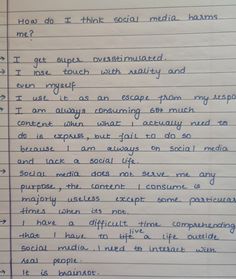 How do I think social media harms
me?
→ I get super overstimulated.
→ I lose touch with reality and
even myself
→ I use it as an escape from my respo
→ I am always consuming too much
content when what I actually need to
do is express, but fail to do so
because I am always on social media
and lack a social life.
→ Social media does not serve me any
purpose, the content I consume is
majorly useless except some particular
times when its not.
→ I have a difficult time comprehending
that I have to live a life outside
social media. I need to interact with
real people.
→ It is brainrot.